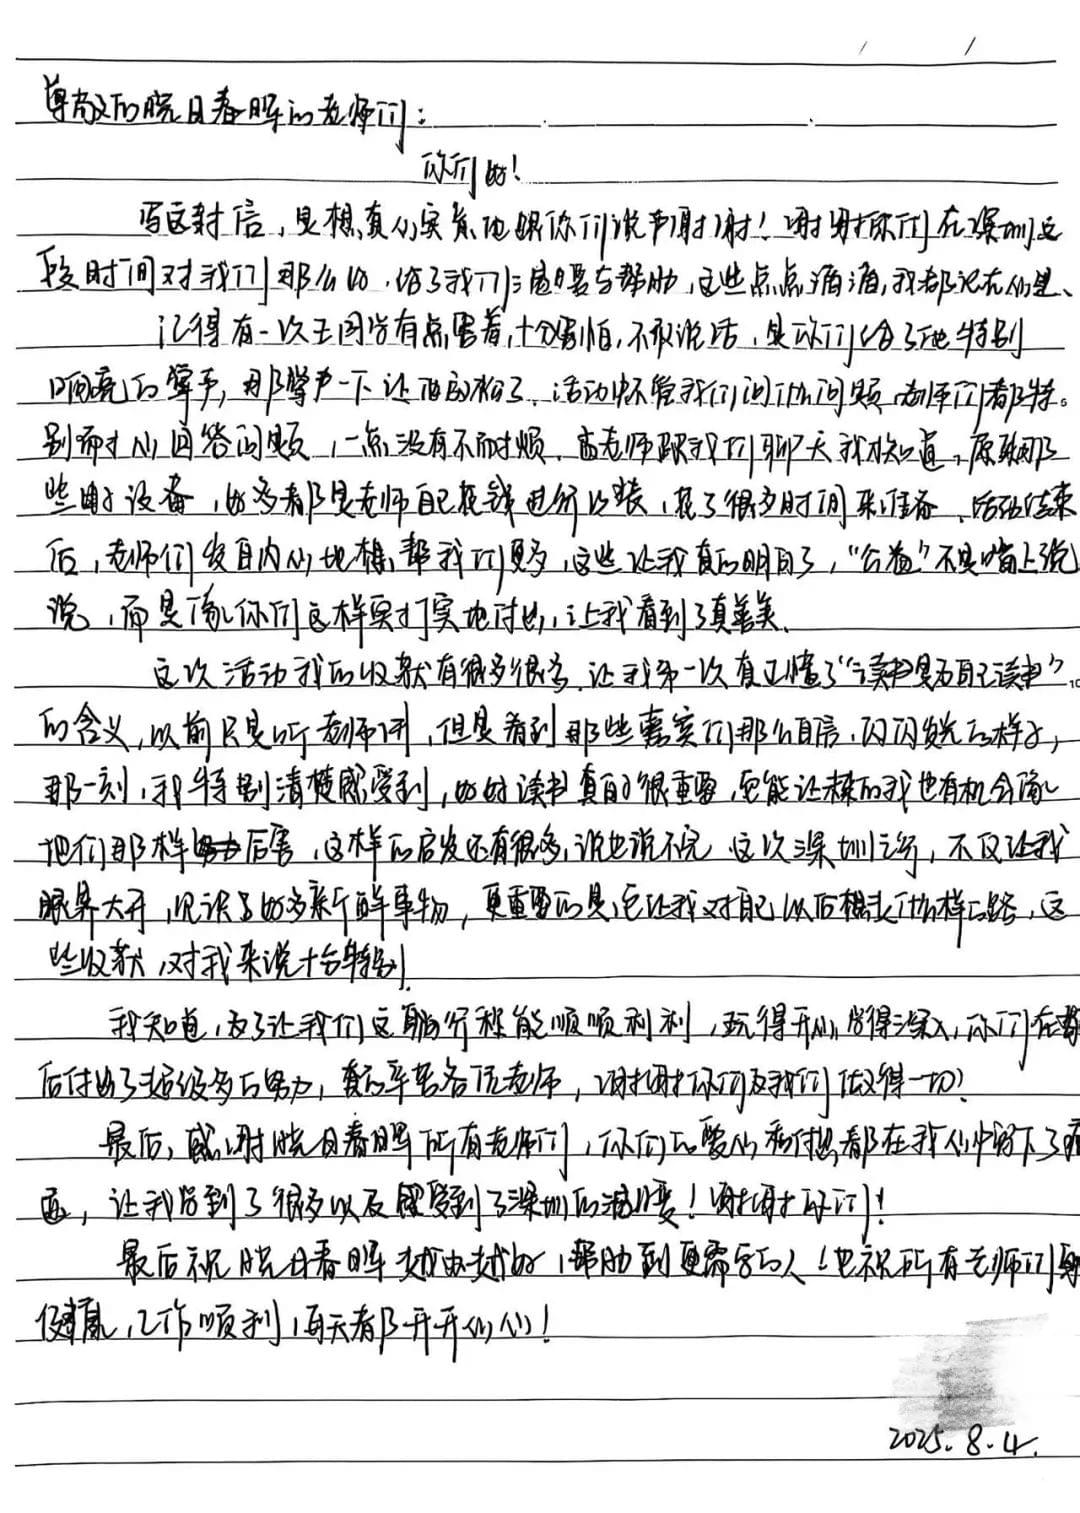 尊敬的皖日春晖的老师们：
你们好！
写这封信，是想真心实意地跟你们说声谢谢！谢谢你们在深圳这
段时间对我们那么好，给了我们温暖与帮助，这些点点滴滴，我都记在心里、
记得有一次王同学有点害羞，十分害怕，不敢说话，是你们给了他特别
响亮的掌声，那掌声一下让他放松了、活动中不管我们问什么问题，老师们都特。
别耐心回答问题，一点没有不耐烦、老师跟我们聊天我才知道，原来那
些电子设备，好多都是老师自己花钱进行改装，花了很多时间来准备、活动结束
后，老师们发自内心地想帮我们更多，这些让我真的明白了，“公益”不是嘴上说
说，而是像你们这样实打实地付出，让我看到了真善美、
这次活动我的收获有很多很多、让我第一次真正懂了“读书是为自己读书”
的含义，以前只是听老师讲，但是看到那些嘉宾们那么自信、闪闪发光的样子，
那一刻，我特别清楚感受到，好好读书真的很重要，它能让未来的我也有机会像
他们那样厉害、这样的启发还有很多，说也说不完 这次深圳之行，不仅让我
眼界大开，见识了好多新鲜事物，更重要的是，它让我对自己以后想走什么样的路、这
些收获，对我来说十分特别！
我知道，为了让我们这趟行程能顺顺利利，玩得开心，学得深入，你们在背
后付出了超级多的努力，真的辛苦各位老师，谢谢你们为我们做得一切！
最后，感谢皖日春晖所有老师们，你们的爱心和付出都在我心中留下了
，让我学到了很多以及感受到了深圳的温暖！谢谢你们！
最后祝皖日春晖越办越好，帮助到更需要的人！也祝所有老师们身
健康，工作顺利，每天都开开心心！
2025.8.4.